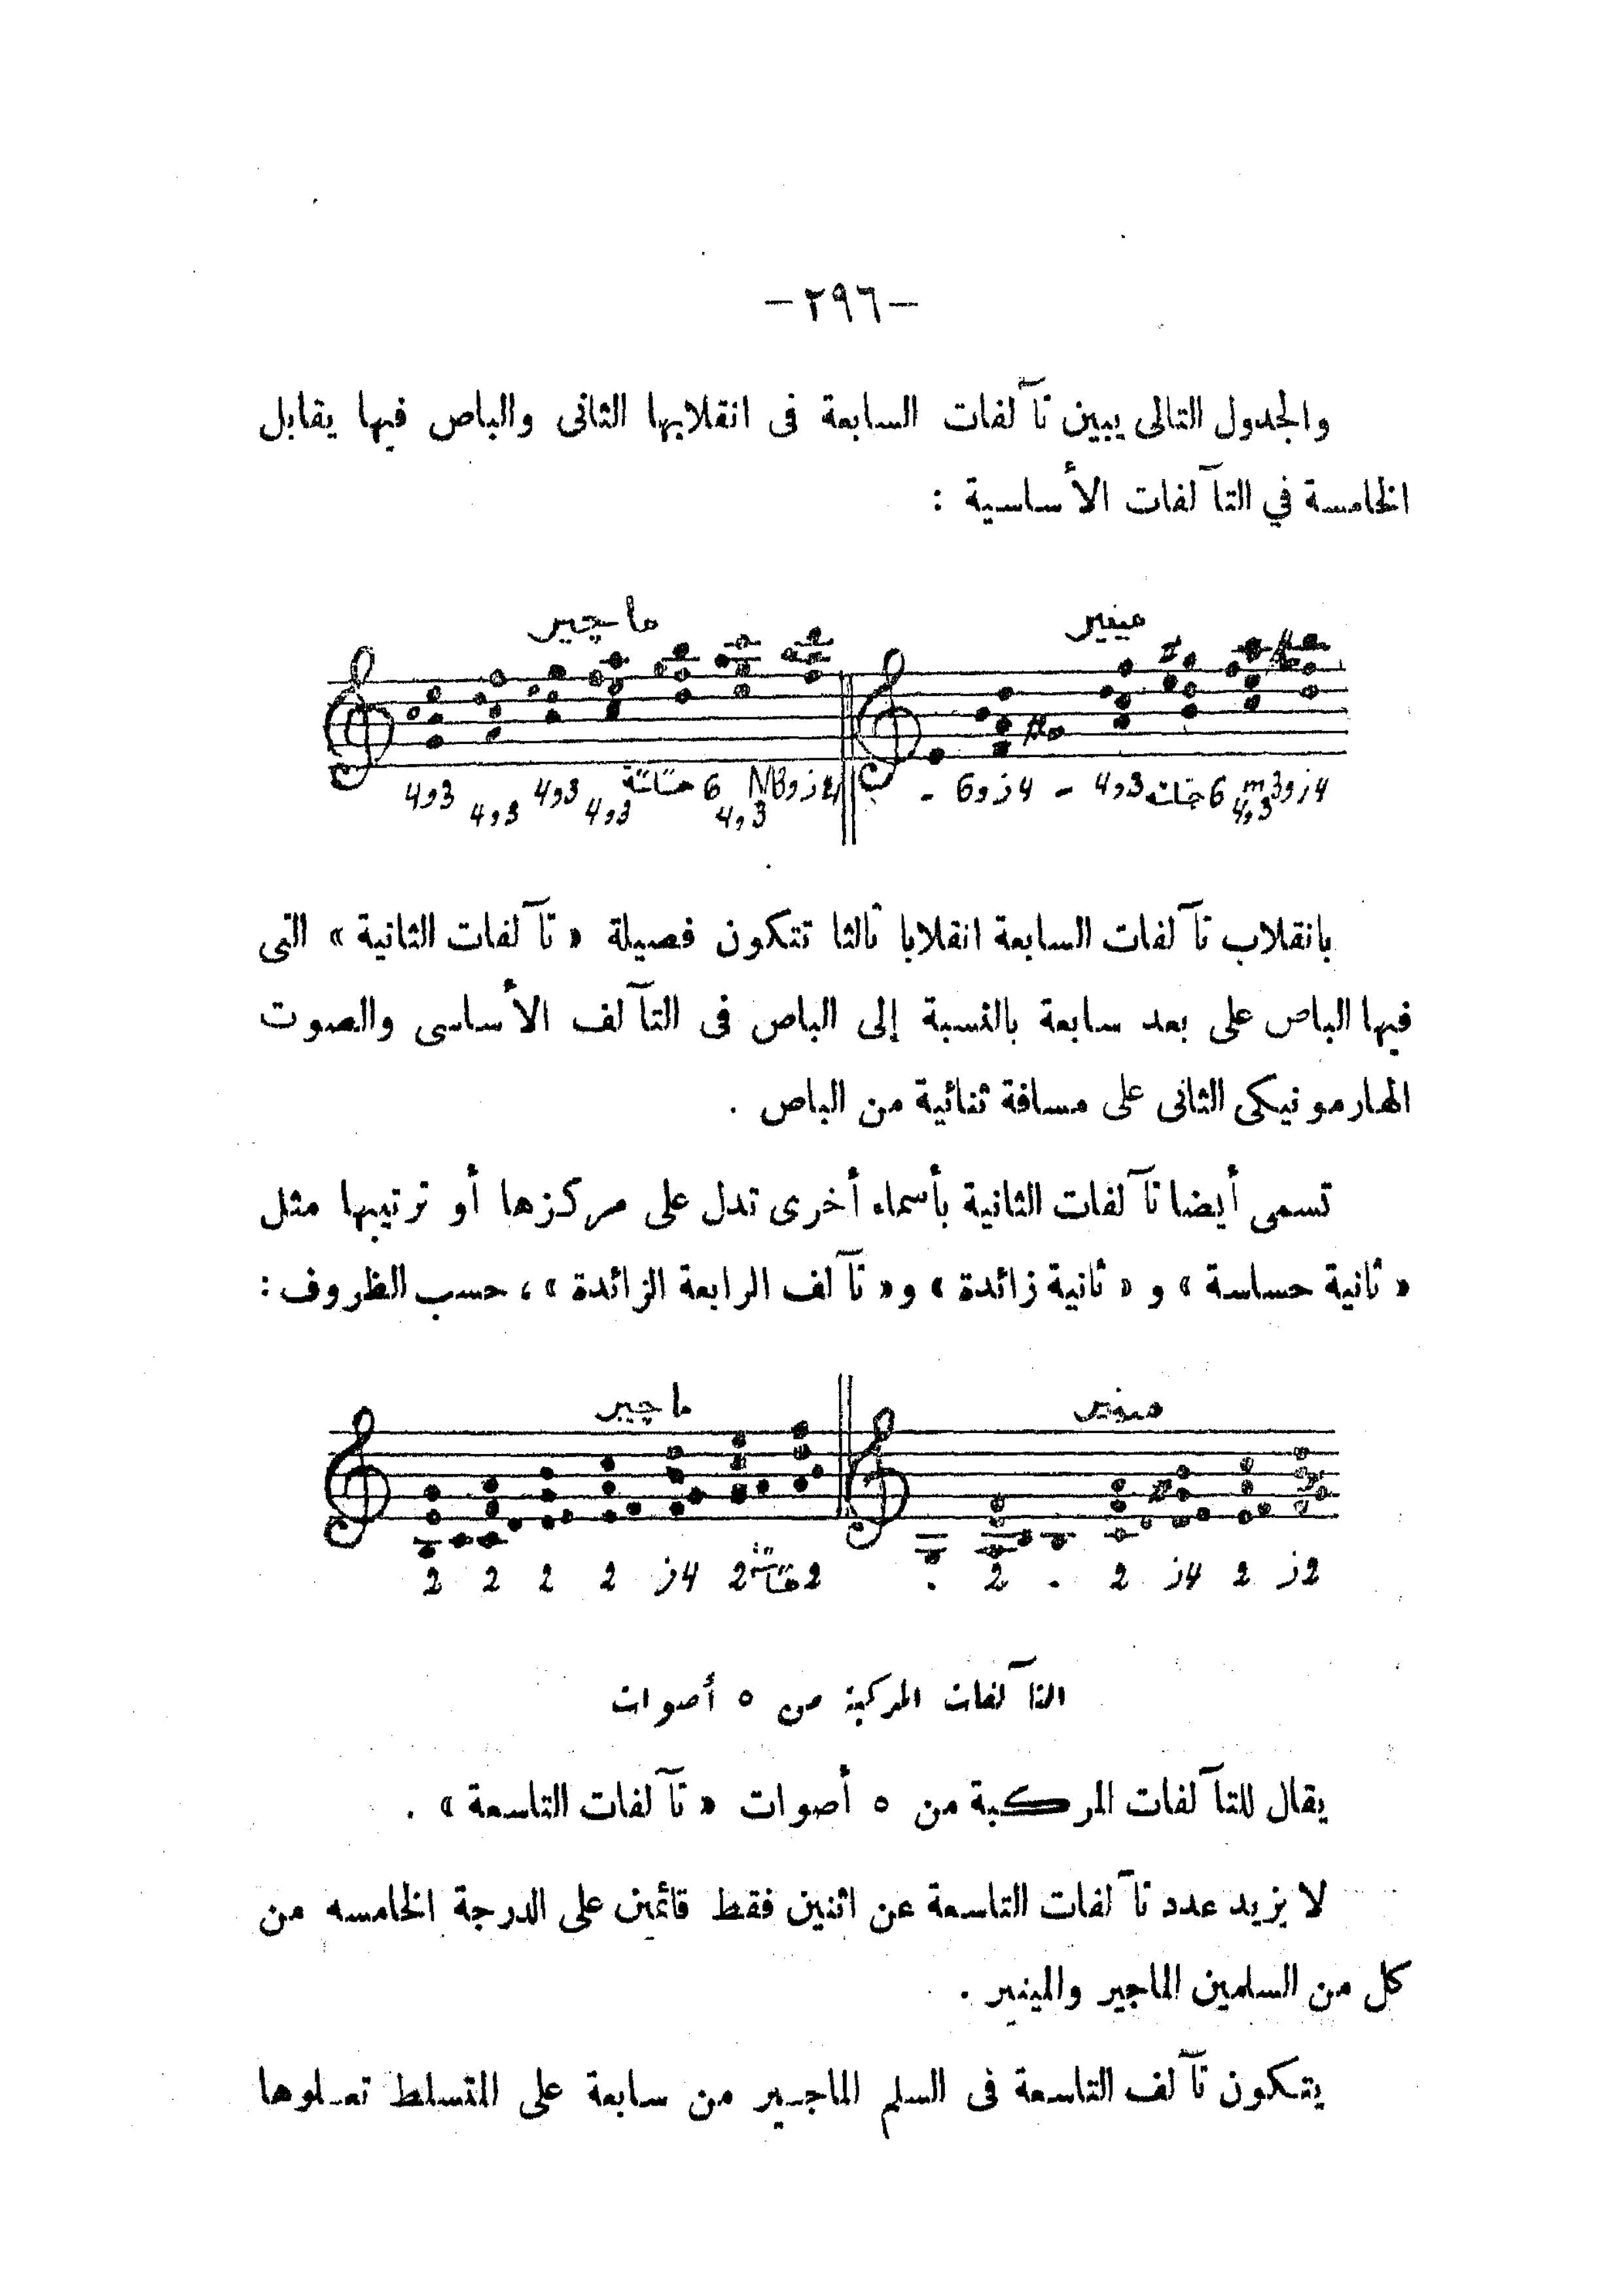 — ٢٩٦ —
والجدول التالى يبين تآلفات السابعة فى انقلابها الثانى والباص فيها يقابل
الخامسة في التآلفات الأساسية :
ماچير
مينير
4و3 4و3 4و3 4و3 6 4و3 - 6و4ز - 4و3 6 4و3
بانقلاب تآلفات السابعة انقلابا ثالثا تتكون فصيلة « تآلفات الثانية » التى
فيها الباص على بعد سابعة بالنسبة إلى الباص فى التآلف الأساسى والصوت
الهارمونيكى الثانى على مسافة ثنائية من الباص .
تسمى أيضا تآلفات الثانية بأسماء أخرى تدل على مركزها أو ترتيبها مثل
« ثانية حساسة » و « ثانية زائدة » و « تآلف الرابعة الزائدة » ، حسب الظروف :
ماچير
مينير
2 2 2 2 4ز 2 2 . 2 . 2 4ز 2 2ز
التآلفات المركبة من ٥ أصوات
يقال للتآلفات المركبة من ٥ أصوات « تآلفات التاسعة » .
لا يزيد عدد تآلفات التاسعة عن اثنين فقط قائمين على الدرجة الخامسه من
كل من السلمين الماجير والمينير .
يتكون تآلف التاسعة فى السلم الماجير من سابعة على المتسلط تعلوها